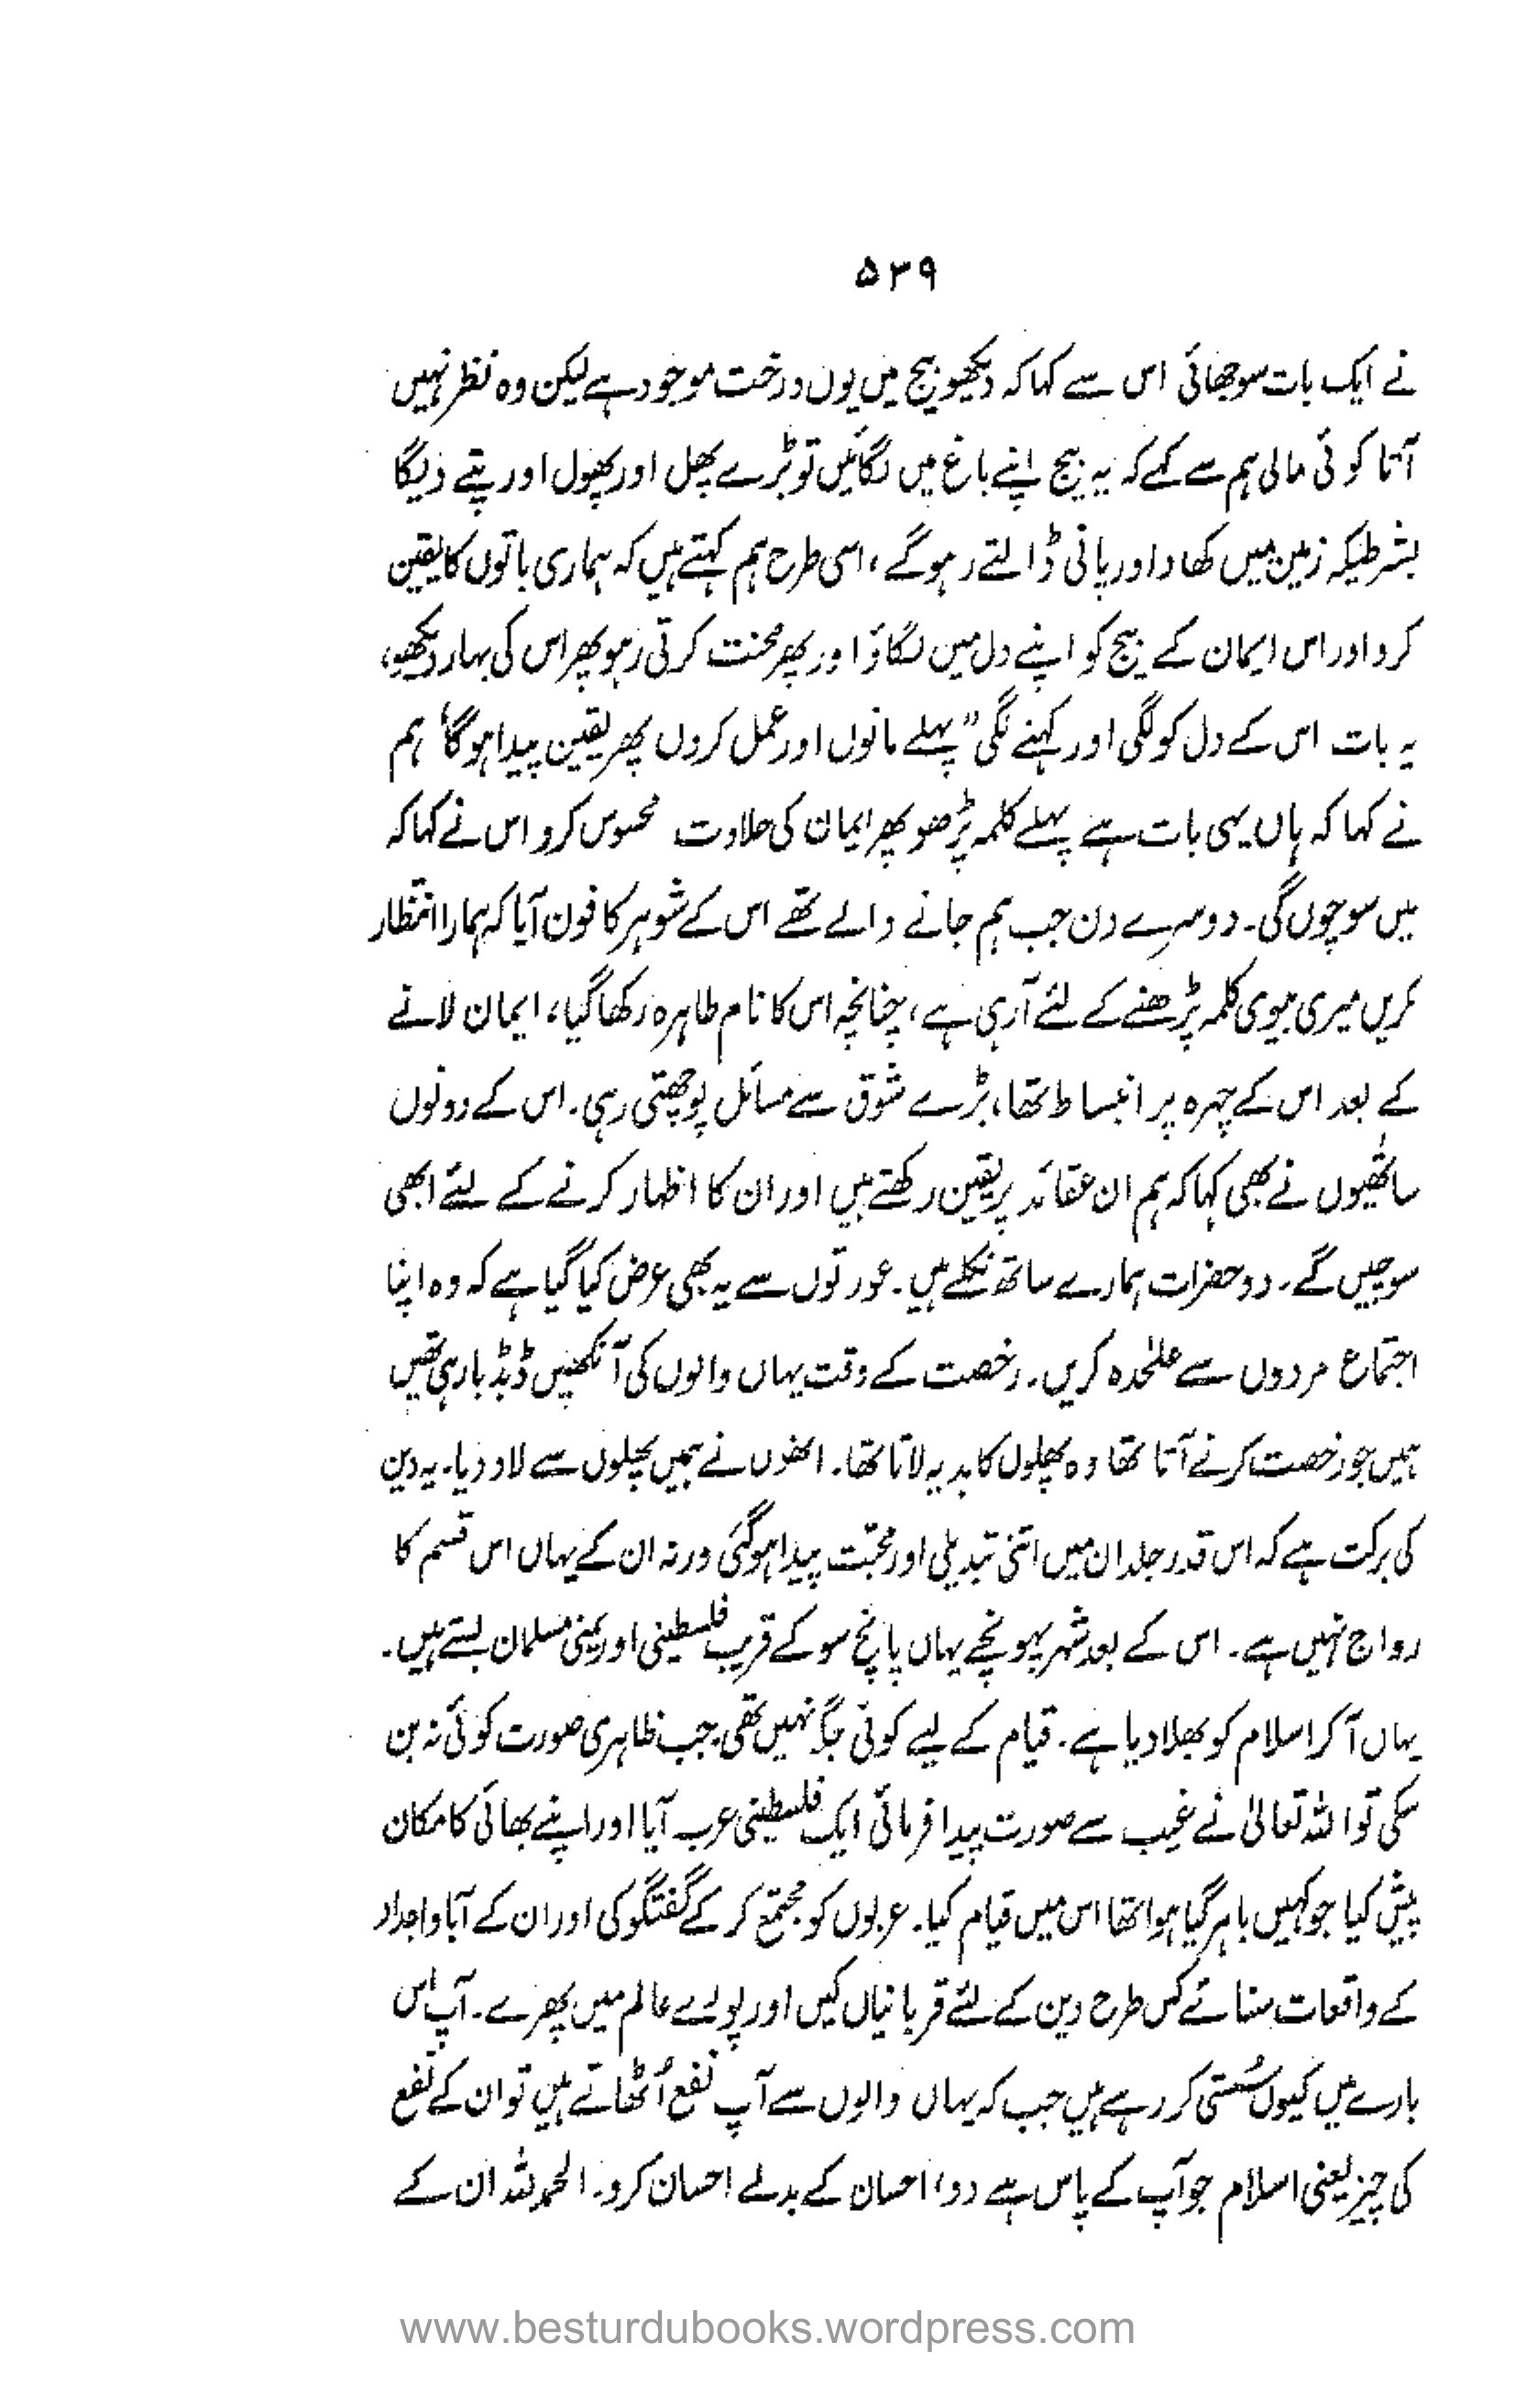 ۵۳۹
نے ایک بات سوجھائی اس سے کہا کہ دیکھو بیج میں یوں درخت موجود ہے لیکن وہ نظر نہیں
آتا کوئی مالی ہم سے کہے کہ یہ بیج اپنے باغ میں لگائیں تو بڑے پھل اور پھول اور پتے دیگا
بشرطیکہ زمین میں کھاد اور پانی ڈالتے رہوگے، اسی طرح ہم کہتے ہیں کہ ہماری باتوں کا یقین
کرو اور اس ایمان کے بیج کو اپنے دل میں لگاؤ اور پھر محنت کرتی رہو پھر اس کی بہار دیکھو،
یہ بات اس کے دل کو لگی اور کہنے لگی ”پہلے مانوں اور عمل کروں پھر یقین پیدا ہوگا‘ ہم
نے کہا کہ ہاں یہی بات ہے پہلے کلمہ پڑھو پھر ایمان کی حلاوت محسوس کرو اس نے کہا کہ
میں سوچوں گی۔ دوسرے دن جب ہم جانے والے تھے اس کے شوہر کا فون آیا کہ ہمارا انتظار
کریں میری بیوی کلمہ پڑھنے کے لئے آرہی ہے، چنانچہ اس کا نام طاہرہ رکھا گیا، ایمان لانے
کے بعد اس کے چہرہ پر انبساط تھا، بڑے شوق سے مسائل پوچھتی رہی۔ اس کے دونوں
ساتھیوں نے بھی کہا کہ ہم ان عقائد پر یقین رکھتے ہیں اور ان کا اظہار کرنے کے لئے ابھی
سوچیں گے۔ دو حضرات ہمارے ساتھ نکلے ہیں۔ عورتوں سے یہ بھی عرض کیا گیا ہے کہ وہ اپنا
اجتماع مردوں سے علٰحدہ کریں۔ رخصت کے وقت یہاں والوں کی آنکھیں ڈبڈبا رہی تھیں
ہمیں جو رخصت کرنے آتا تھا وہ پھلوں کا ہدیہ لاتا تھا۔ انھوں نے ہمیں پھلوں سے لاد دیا۔ یہ دین
کی برکت ہے کہ اس قدر جلد ان میں اتنی تبدیلی اور محبّت پیدا ہوگئی ورنہ ان کے یہاں اس قسم کا
رواج نہیں ہے۔ اس کے بعد شہر پہونچے یہاں پانچ سو کے قریب فلسطینی اور یمنی مسلمان بستے ہیں۔
یہاں آکر اسلام کو بھلا دیا ہے۔ قیام کے لیے کوئی جگہ نہیں تھی۔ جب ظاہری صورت کوئی نہ بن
سکی تو اللہ تعالیٰ نے غیب سے صورت پیدا فرمائی ایک فلسطینی عرب آیا اور اپنے بھائی کا مکان
پیش کیا جو کہیں باہر گیا ہوا تھا اس میں قیام کیا۔ عربوں کو مجتمع کر کے گفتگو کی اور ان کے آبا و اجداد
کے واقعات سنائے کس طرح دین کے لئے قربانیاں کیں اور پورے عالم میں پھرے۔ آپ اس
بارے میں کیوں سُستی کر رہے ہیں جب کہ یہاں والوں سے آپ نفع اُٹھاتے ہیں تو ان کے نفع
کی چیز یعنی اسلام جو آپ کے پاس ہے دو، احسان کے بدلے احسان کرو۔ الحمد للہ ان کے
www.besturdubooks.wordpress.com